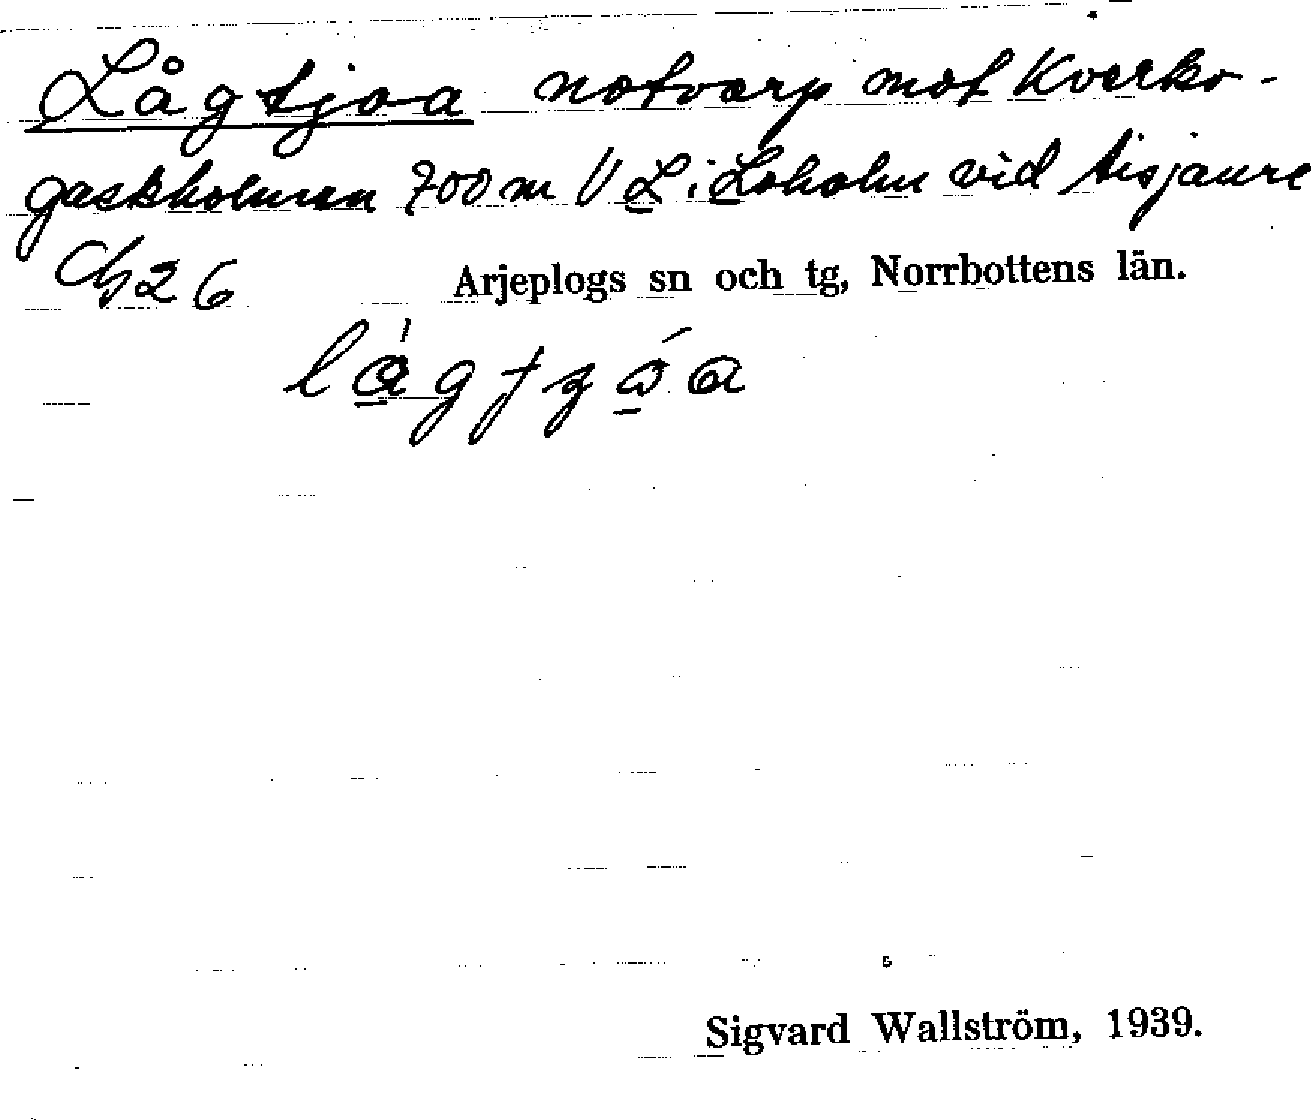 Lågtjoa notvarp mot Kverko-
gaskholmen 700 m V L i Loholm vid Aisjaure
Ch 26 Arjeplogs sn och tg, Norrbottens län.
Sigvard Wallström, 1939.